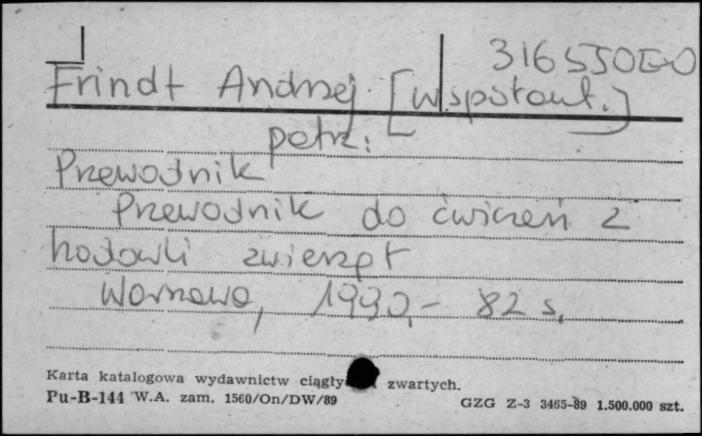 316550 EO
Frindt Andrzej [współaut.]
patrz:
Przewodnik
Przewodnik do ćwiczeń z
hodowli zwierząt
Warszawa, 1990,- 82 s.
Karta katalogowa wydawnictw ciągły zwartych.
Pu-B-144 W.A. zam. 1560/On/DW/89 GZG Z-3 3465-89 1.500.000 szt.